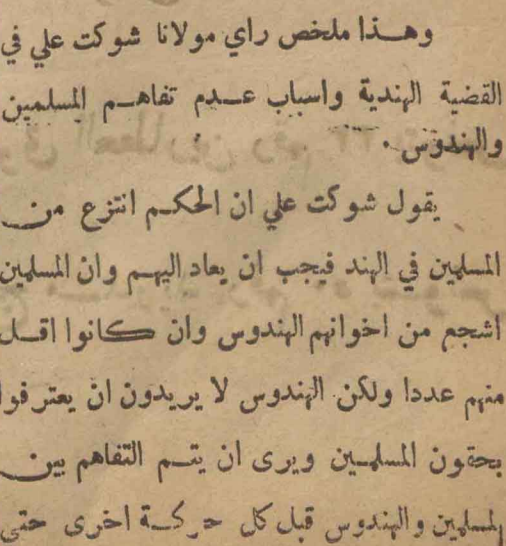 وهذا ملخص راي مولانا شوكت علي في
القضية الهندية واسباب عدم تفاهم المسلمين
والهندوس .
يقول شوكت علي ان الحكم انتزع من
المسلمين في الهند فيجب ان يعاد اليهم وان المسلمين
اشجع من اخوانهم الهندوس وان كانوا اقل
منهم عددا ولكن الهندوس لا يريدون ان يعترفوا
بحقون المسلمين ويرى ان يتم التفاهم بين
المسلمين والهندوس قبل كل حركة اخرى حتى